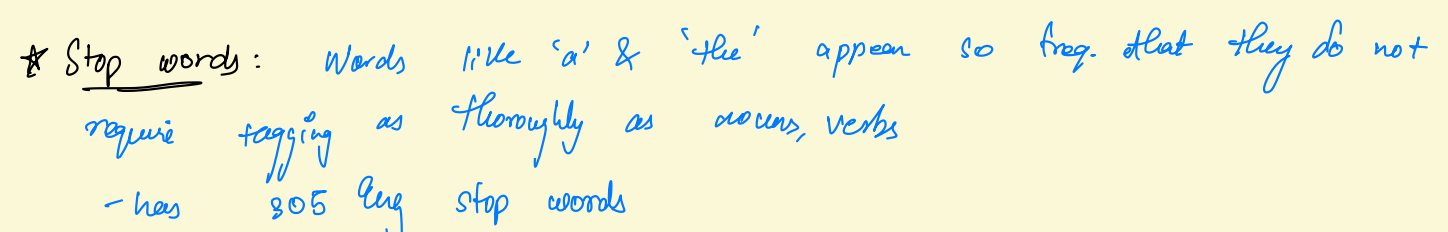 * Stop words: Words like 'a' & 'the' appear so freq. that they do not
require tagging as thoroughly as nouns, verbs
- has 305 Eng stop words